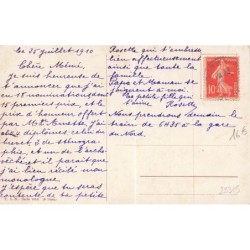 Le 25 juillet 1910
Chère Mimi
Je suis heureuse de
t'annoncer que j'ai eu
18 nominations dont
15 premiers prix, et le
prix d'honneur offert
par Mlle
diplômes, celui du
brevet, 3 de sténogra
phie, et un de l'acho
il paraît que
j'ai bien récité mon
monologue
J'espère que tu seras
contente de ta petite
Rosette qui t'embrasse
bien affectueusement
ainsi que toute la
famille
Papa et Maman se
joignent à moi
Ta petite fille qui
t'aime
Rosette
Nous prendrons demain le
train de 6h35 à la gare
du Nord.
10